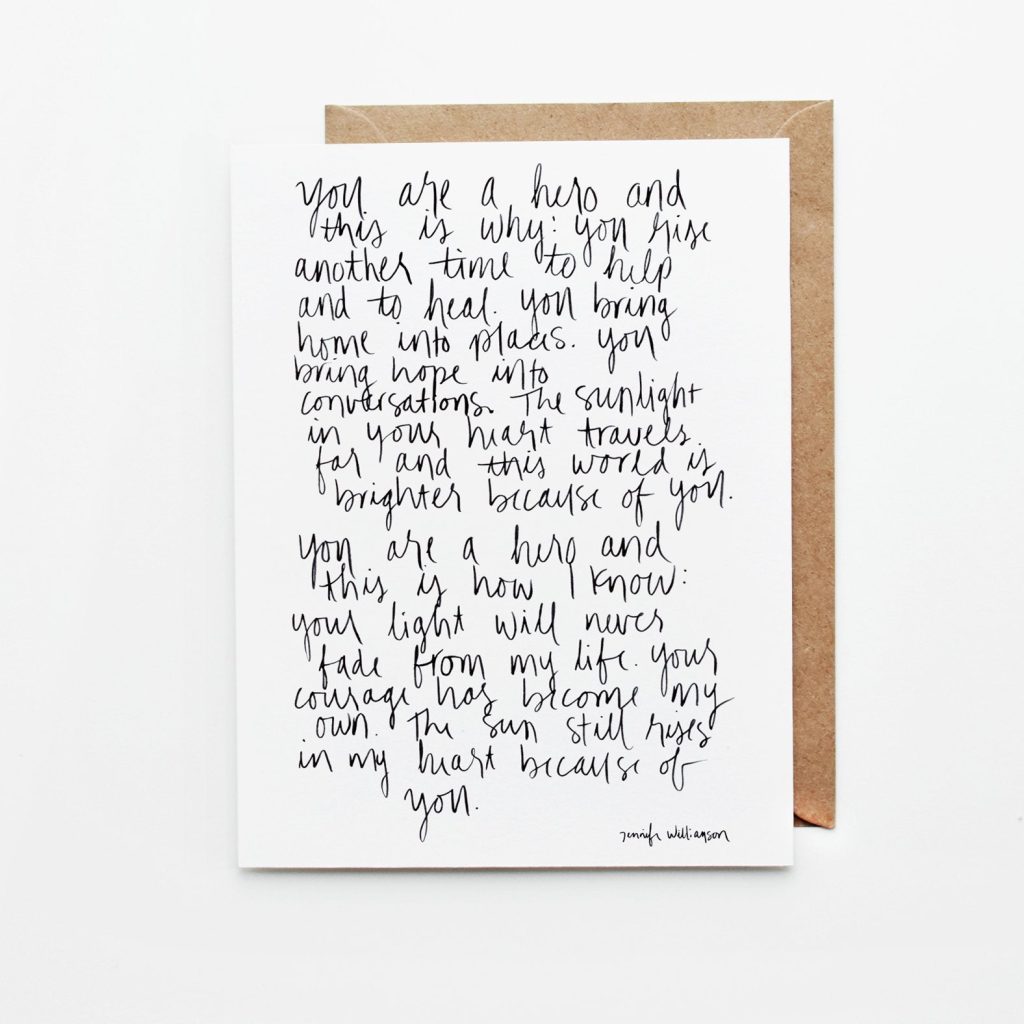 you are a hero and
this is why: you rise
another time to help
and to heal. you bring
home into places. you
bring hope into
conversations. The sunlight
in your heart travels
far and this world is
brighter because of you.
you are a hero and
this is how I know:
your light will never
fade from my life. your
courage has become my
own. The sun still rises
in my heart because of
you.
Jennifer Williamson